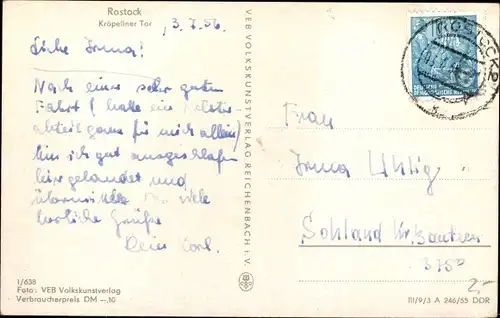 Rostock
Kröpeliner Tor
3.7.56.
Liebe Irma!
Nach einer sehr guten
Fahrt (hatte ein
abteil ganz für mich allein)
bin ich gut ausgeschlafen
hier gelandet und
viele
herzliche Grüße
Dein
1/638
Foto: VEB Volkskunstverlag
Verbraucherpreis DM -,10
VEB VOLKSKUNSTVERLAG REICHENBACH i. V.
ROSTOCK
Frau
Irma Uhlig
Sohland Kr. Bautzen
375
III/9/3 A 246/55 DDR